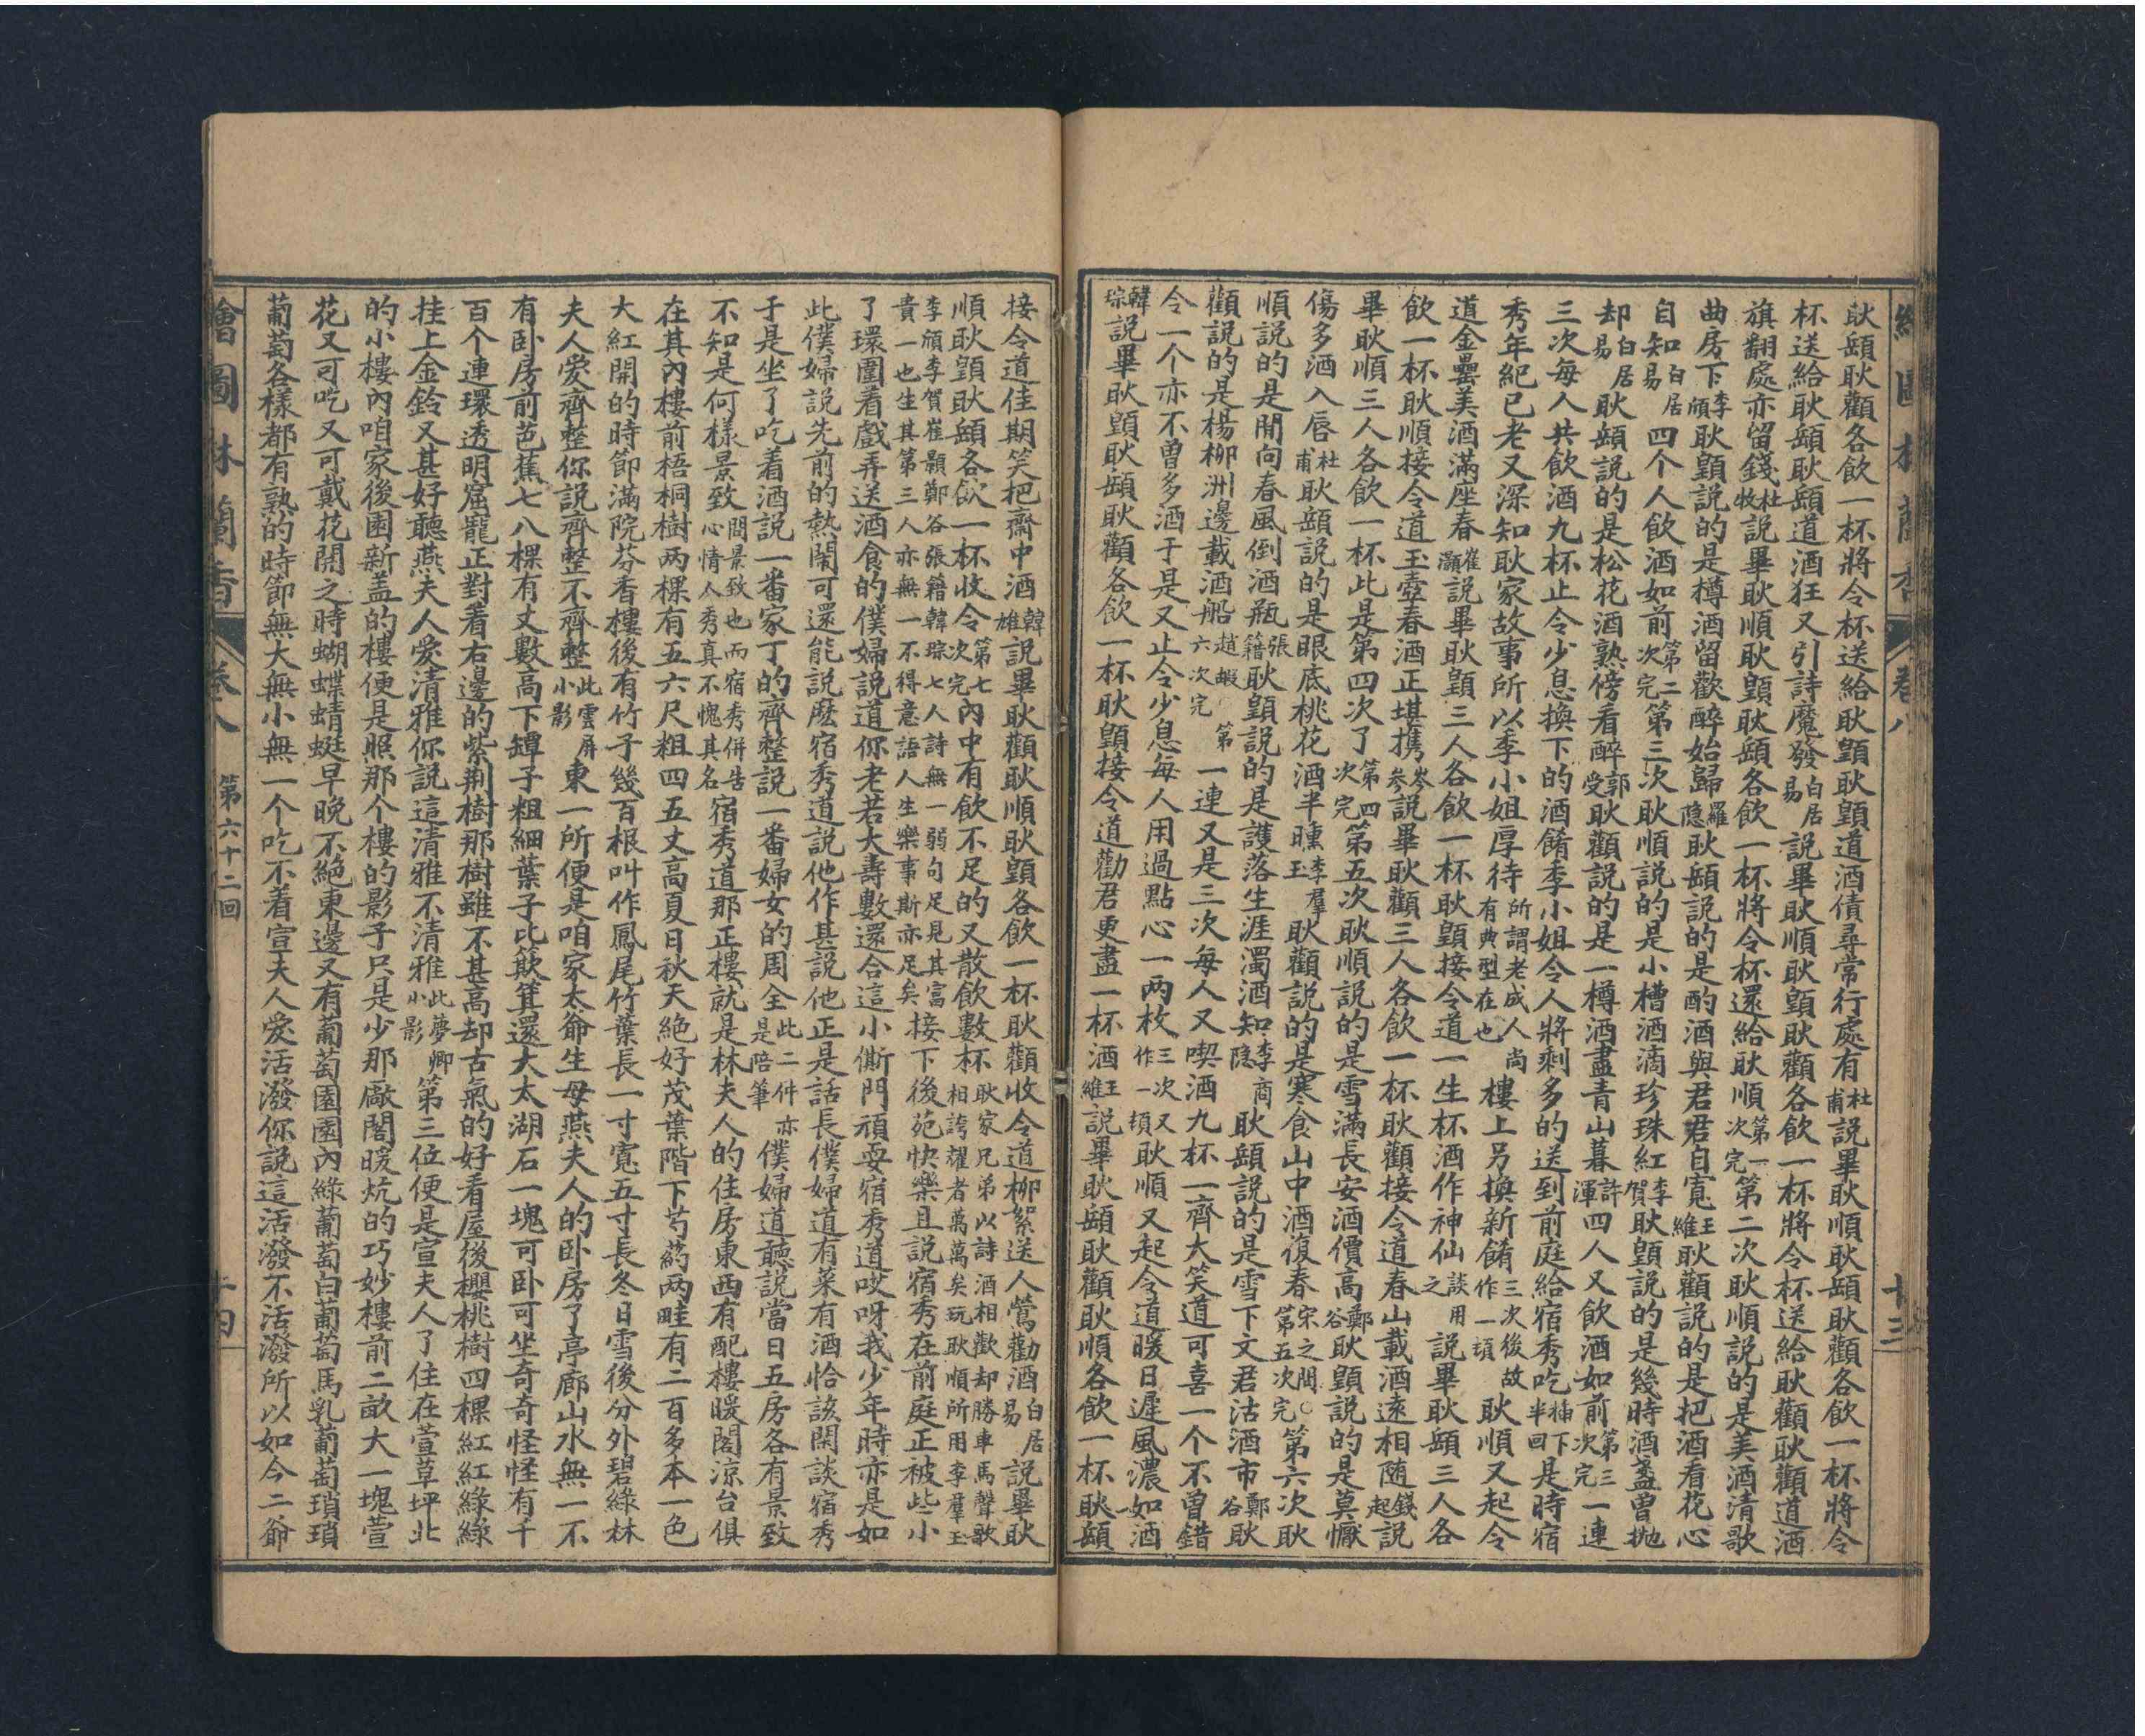 繪圖林蘭香 卷八 十三
耿䫌耿顴各飲一杯將令杯送給耿顗耿顗道酒債尋常行處有杜甫說畢耿順耿䫌耿顴各飲一杯將令
杯送給耿䫌耿䫌道酒狂又引詩魔發白居易說畢耿順耿顗耿顴各飲一杯將令杯送給耿顴耿顴道酒
旗翻處亦留錢杜牧說畢耿順耿顗耿䫌各飲一杯將令杯還給耿順第一次完第二次耿順說的是美酒清歌
曲房下李頎耿顗說的是樽酒留歡醉始歸羅隐耿䫌說的是酌酒與君君自寬王維耿顴說的是把酒看花心
自知白居易四个人飲酒如前第二次完第三次耿順說的是小槽酒滴珍珠紅李賀耿顗說的是幾時酒盞曾抛
却白居易耿䫌說的是松花酒熟傍看醉郭受耿顴說的是一樽酒盡青山暮許渾四人又飲酒如前第三次完一連
三次每人共飲酒九杯止令少息換下的酒餚季小姐令人將剩多的送到前庭給宿秀吃插下半回是時宿
秀年紀已老又深知耿家故事所以季小姐厚待所謂老成人尚有典型在也樓上另換新餚三次後故作一頓耿順又起令
道金罍美酒滿座春崔灝說畢耿顗三人各飲一杯耿顗接令道一生杯酒作神仙談用之說畢耿䫌三人各
飲一杯耿順接令道玉壺春酒正堪携岑参說畢耿顴三人各飲一杯耿顴接令道春山載酒遠相随錢起說
畢耿順三人各飲一杯此是第四次了第四次完第五次耿順說的是雪滿長安酒價高鄭谷耿顗說的是莫懨
傷多酒入唇杜甫耿䫌說的是眼底桃花酒半醺李羣玉耿顴說的是寒食山中酒復春宋之問○第五次完第六次耿
順說的是開向春風倒酒瓶張籍耿顗說的是護落生涯濁酒知李商隐耿䫌說的是雪下文君沽酒市鄭谷耿
顴說的是楊柳洲邊載酒船趙嘏 第六次完一連又是三次每人又喫酒九杯一齊大笑道可喜一个不曾錯
令一个亦不曾多酒于是又止令少息每人用過點心一两枚三次又作一頓耿順又起令道暖日遲風濃如酒
韓琮說畢耿顗耿䫌耿顴各飲一杯耿顗接令道勸君更盡一杯酒王維說畢耿䫌耿顴耿順各飲一杯耿䫌
接令道佳期笑把齋中酒韓雄說畢耿顴耿順耿顗各飲一杯耿顴收令道柳絮送人鶯勸酒白居易說畢耿
順耿顗耿䫌各飲一杯收令第七次完內中有飲不足的又散飲數杯耿家兄弟以詩酒相歡却勝車馬聲歌相誇耀者萬萬矣玩耿順所用李羣玉
李頎李賀崔顥鄭谷張籍韓琮七人詩無一弱句足見其富貴一也生其第三人亦無一不得意語人生樂事斯亦足矣接下後苑快樂且説宿秀在前庭正被些小
了環圍着戲弄送酒食的僕婦說道你老若大壽數還合這小厮門頑耍宿秀道哎呀我少年時亦是如
此僕婦説先前的熱鬧可還能説麽宿秀道說他作甚説他正是話長僕婦道有菜有酒恰該閑談宿秀
于是坐了吃着酒説一番家丁的齊整説一番婦女的周全此二件亦是陪筆僕婦道聽説當日五房各有景致
不知是何樣景致問景致也而宿秀併告心情人秀真不愧其名宿秀道那正樓就是林夫人的住房東西有配樓暖閣凉台俱
在其內樓前梧桐樹两棵有五六尺粗四五丈高夏日秋天絶好茂葉階下芍药两畦有二百多本一色
大紅開的時節滿院芬香樓後有竹子幾百根叫作鳳尾竹葉長一寸寬五寸長冬日雪後分外碧綠林
夫人愛齊整你説齊整不齊整此雲屏小影東一所便是咱家太爺生母燕夫人的卧房了亭廊山水無一不
有卧房前芭蕉七八棵有丈數高下罈子粗細葉子比簸箕還大太湖石一塊可卧可坐奇奇怪怪有千
百个連環透明窟竉正對着右邊的紫荆樹那樹雖不甚高却古氣的好看屋後櫻桃樹四棵紅紅綠綠
挂上金鈴又甚好聽燕夫人愛清雅你説這清雅不清雅此夢卿小影第三位便是宣夫人了住在萱草坪北
的小樓內咱家後園新盖的樓便是照那个樓的影子只是少那厰閣暖炕的巧妙樓前二畝大一塊萱
花又可吃又可戴花開之時蝴蝶蜻蜓早晚不絶東邊又有葡萄園園內綠葡萄白葡萄馬乳葡萄瑣瑣
葡萄各樣都有熟的時節無大無小無一个吃不着宣夫人愛活潑你説這活潑不活潑所以如今二爺
繪圖林蘭香 卷八 第六十二回 十四